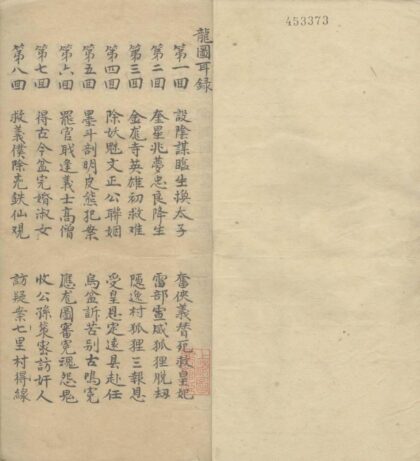 453373
龍圖耳錄
第一回 設陰謀臨生換太子 奮俠義替死救皇妃
第二回 奎星兆夢忠良降生 雷部宣威狐狸脫劫
第三回 金庬寺英雄初救難 隱逸村狐狸三報恩
第四回 除妖魅文正公聯姻 受皇恩定遠县赴任
第五回 墨斗剖明皮熊犯案 烏盆訴苦别古鳴寃
第六回 罷官職逢義士高僧 應庬圖審寃魂怨鬼
第七回 得古今盆完婚淑女 收公孫策宻訪奸人
第八回 救義僕除兇鉄仙观 訪疑案七里村得線